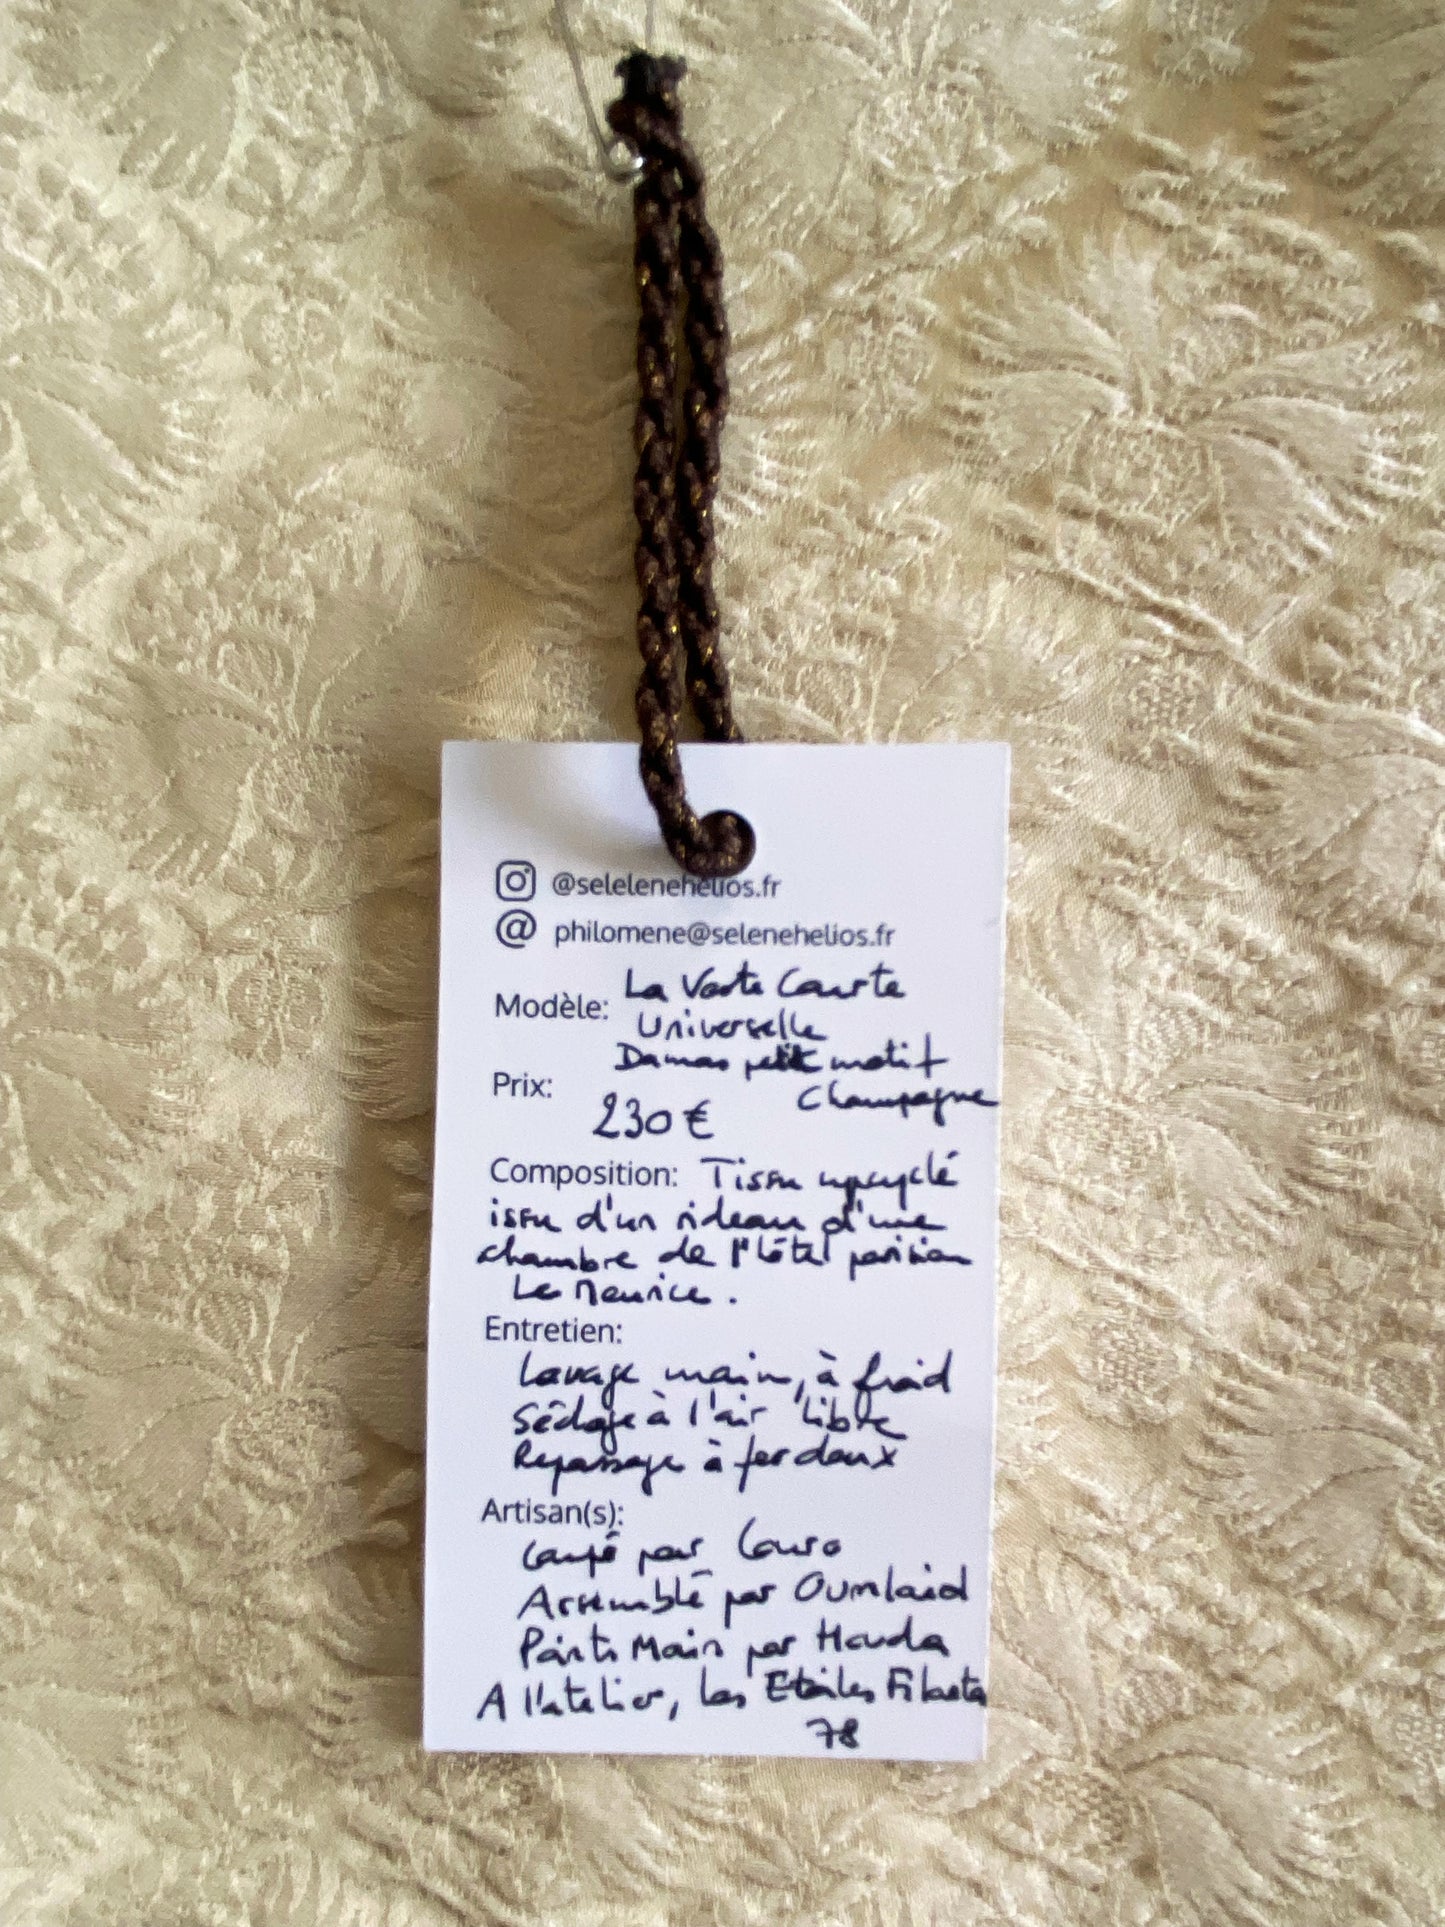 @selelenehelios.fr
@ philomene@selenehelios.fr
Modèle: La Veste Courte
Universelle
Damas petit motif
Champagne
Prix: 230 €
Composition: Tissu upcyclé
issu d'un rideau d'une
chambre de l'hôtel parisien
Le Meurice.
Entretien:
Lavage main, à froid
Séchage à l'air libre
Repassage à fer doux
Artisan(s):
Coupé par
Assemblé par Oumlaid
Points Main par Houda
A l'atelier, les Etoiles
78